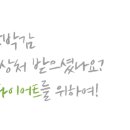 박감
상처 받으셨나요?
다이어트를 위하여!